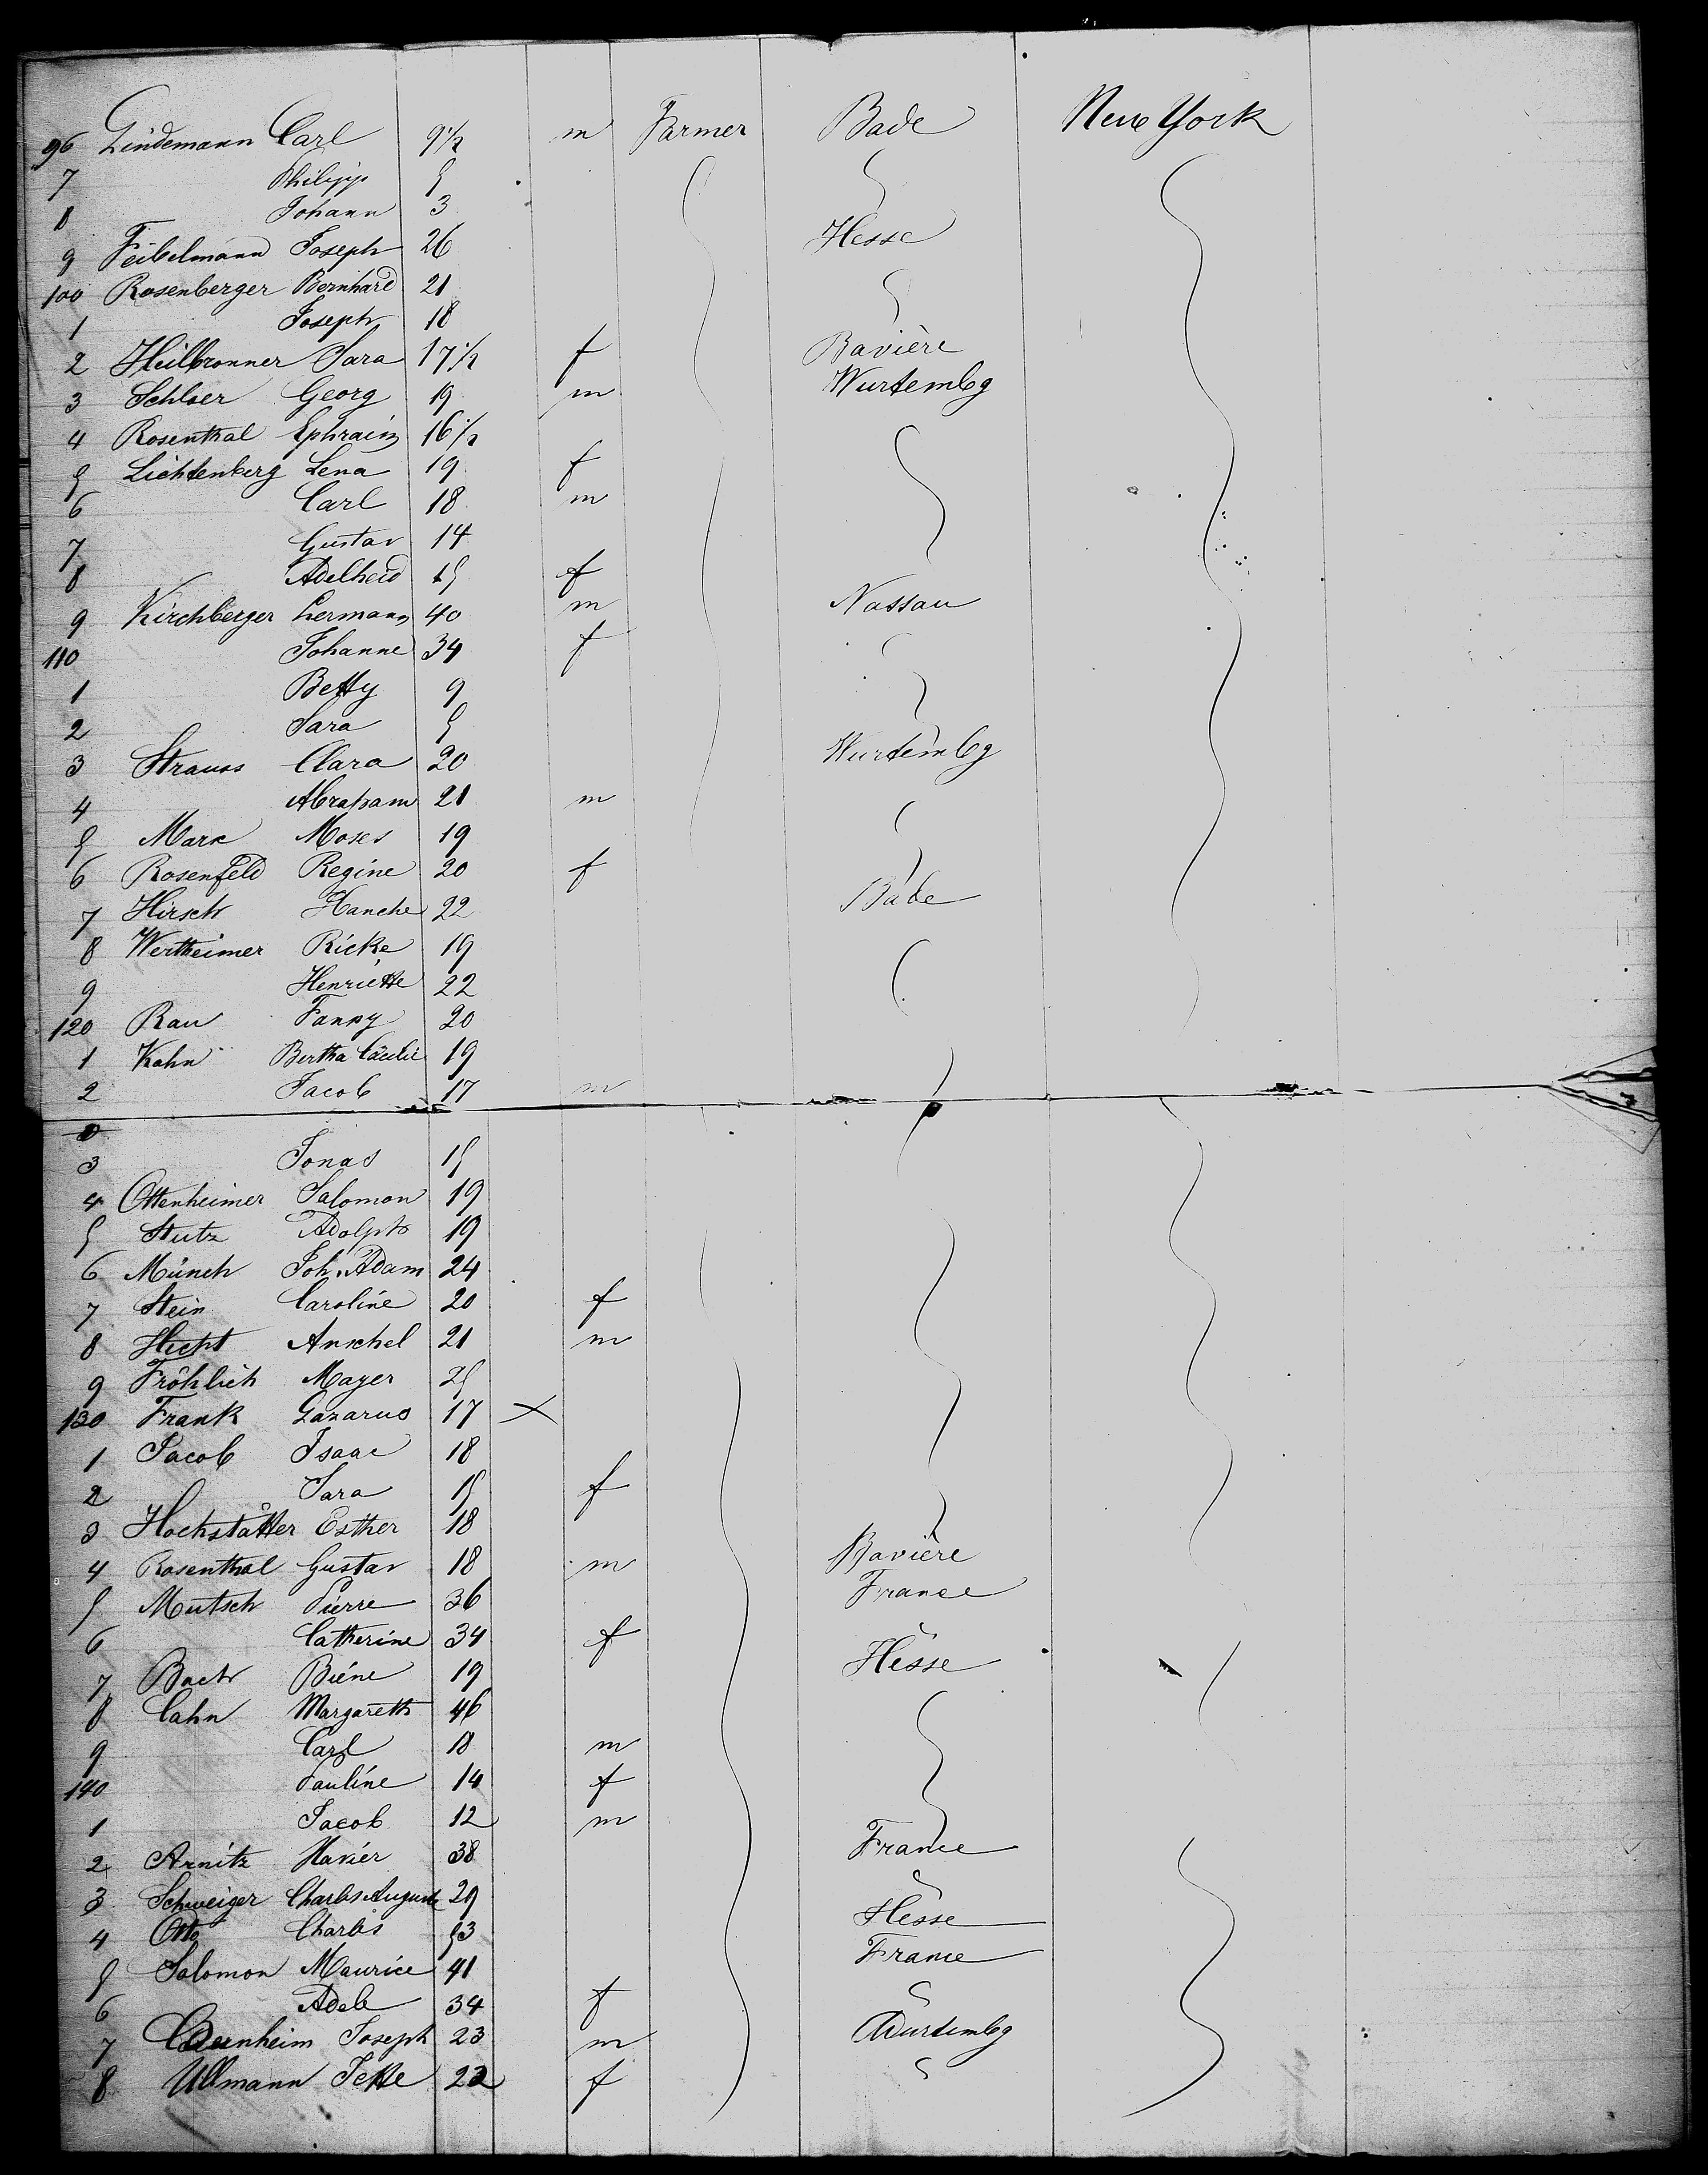 96 Lindemann Carl 9 1/2 m Farmer Bade New York
7 Philipp 5
8 Johann 3
9 Feibelmann Joseph 26 Hesse
100 Rosenberger Bernhard 21
1 Joseph 18
2 Heilbronner Sara 17 1/2 f Bavière
3 Schloer Georg 19 m Wurtembg
4 Rosenthal Ephraim 16 1/2
5 Lichtenberg Lena 19 f
6 Carl 18 m
7 Gustav 14
8 Adelheid 15 f
9 Kirchberger Hermann 40 m Nassau
110 Johanne 34 f
1 Betty 9
2 Sara 5
3 Strauss Clara 20 Wurtembg
4 Abraham 21 m
5 Marx Moses 19
6 Rosenfeld Regine 20 f
7 Hirsch Hanche 22 Bade
8 Wertheimer Ricke 19
9 Henriette 22
120 Rau Fanny 20
1 Kahn Bertha Cäcilie 19
2 Jacob 17 m
3 Jonas 15
4 Ottenheimer Salomon 19
5 Stutz Adolph 19
6 Münch Joh. Adam 24
7 Stein Caroline 20 f
8 Hecht Anschel 21 m
9 Fröhlich Mayer 25
130 Frank Lazarus 17 x
1 Jacob Isaac 18
2 Sara 15 f
3 Hochstätter Esther 18
4 Rosenthal Gustav 18 m Bavière
5 Mutsch Pierre 36 France
6 Catherine 34 f
7 Bach Biene 19 Hesse
8 Cahn Margareth 46
9 Carl 18 m
140 Pauline 14 f
1 Jacob 12 m
2 Arnitz Xavier 38 France
3 Schweiger Charles Auguste 29
4 Otto Charles 53 Hesse
5 Salomon Maurice 41 France
6 Adele 34 f
7 Joseph 23 m Wurtembg
8 Ullmann Jette 22 f